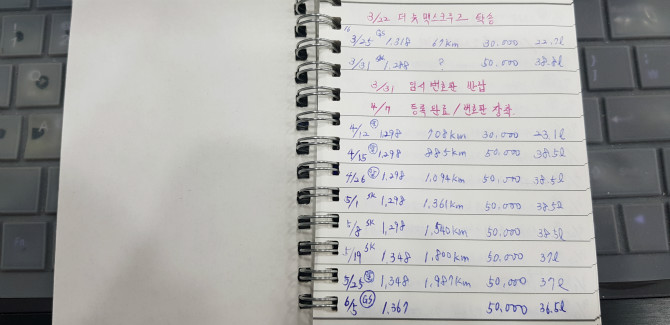 3/22 더 뉴 맥스크루즈 탁송
3/25 GS 1,318 67km 30,000 22.7l
3/31 SK 1,298 50,000 38.8l
3/31 임시번호판 반납
4/7 등록완료/번호판 장착
4/12 1,298 708km 30,000 23.1l
4/15 1,298 885km 50,000 38.5l
4/26 1,298 1,094km 50,000 38.5l
5/1 SK 1,298 1,361km 50,000 38.5l
5/8 SK 1,298 1,540km 50,000 38.5l
5/19 SK 1,348 1,800km 50,000 37l
5/25 1,348 1,987km 50,000 37l
6/5 GS 1,367 50,000 36.5l